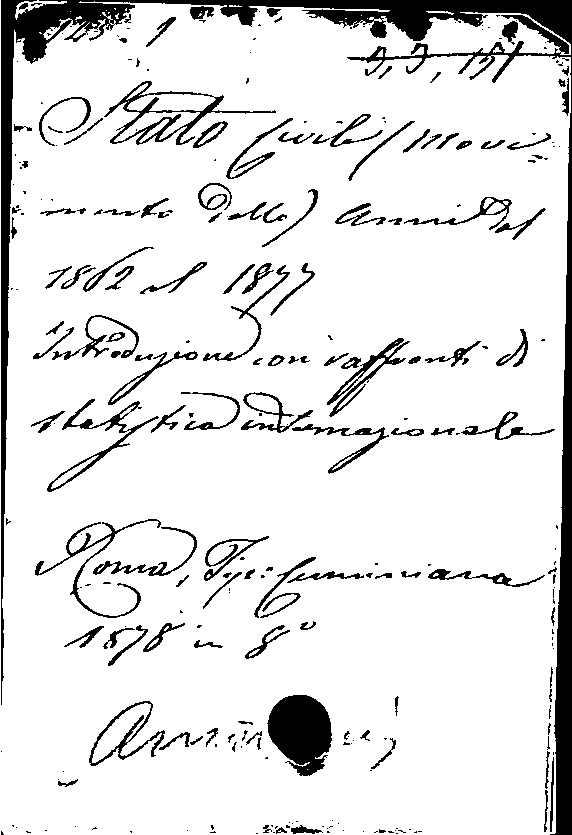 125. 1
5, 5, 151
Stato Civile (movi=
mento dello) Anni dal
1862 al 1877
Introduzione con raffronti di
statistica internazionale
Roma, Tip: Cenniniana
1878 in 8º